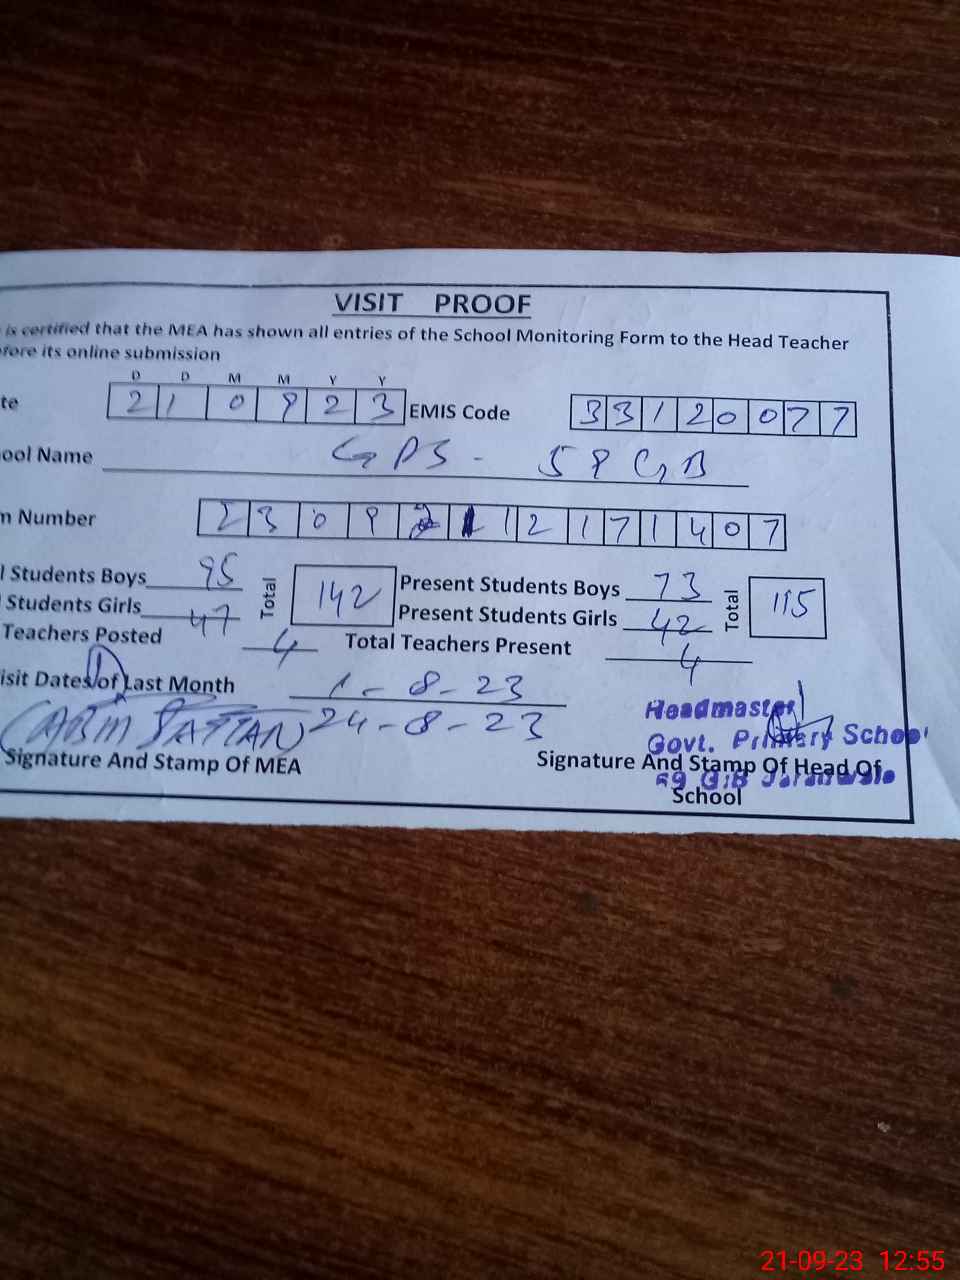 VISIT PROOF
is certified that the MEA has shown all entries of the School Monitoring Form to the Head Teacher
fore its online submission
D D M M Y Y
te 2 1 0 9 2 3 EMIS Code 3 3 1 2 0 0 7 7
ool Name GPS - 59 GB
m Number 2 3 0 9 2 1 1 2 1 7 1 4 0 7
l Students Boys 95 Total 142 Present Students Boys 73 Total 115
Students Girls 47 Present Students Girls 42
Teachers Posted 4 Total Teachers Present 4
isit Dates of Last Month 1-8-23
24-8-23
Headmaster
Govt. Primary School
59 G.B Jaranwala
Signature And Stamp Of MEA
Signature And Stamp Of Head Of
School
21-09-23 12:55